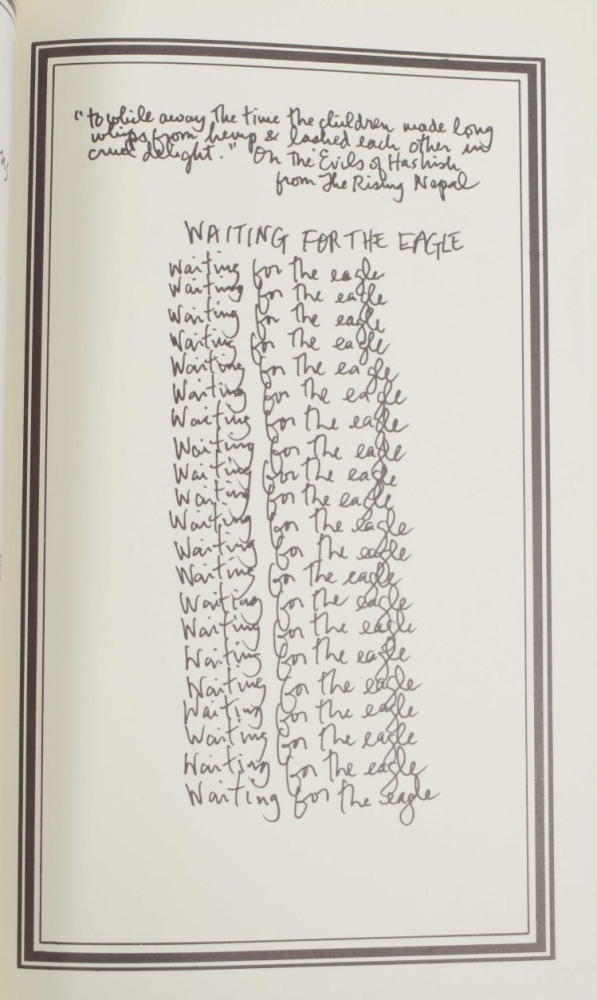 "to while away the time the children made long
whips from hemp & lashed each other in
cruel delight." On The Evils of Hashish
from The Rising Nepal
WAITING FOR THE EAGLE
Waiting for the eagle
Waiting for the eagle
Waiting for the eagle
Waiting for the eagle
Waiting for the eagle
Waiting for the eagle
Waiting for the eagle
Waiting for the eagle
Waiting for the eagle
Waiting for the eagle
Waiting for the eagle
Waiting for the eagle
Waiting for the eagle
Waiting for the eagle
Waiting for the eagle
Waiting for the eagle
Waiting for the eagle
Waiting for the eagle
Waiting for the eagle
Waiting for the eagle
Waiting for the eagle